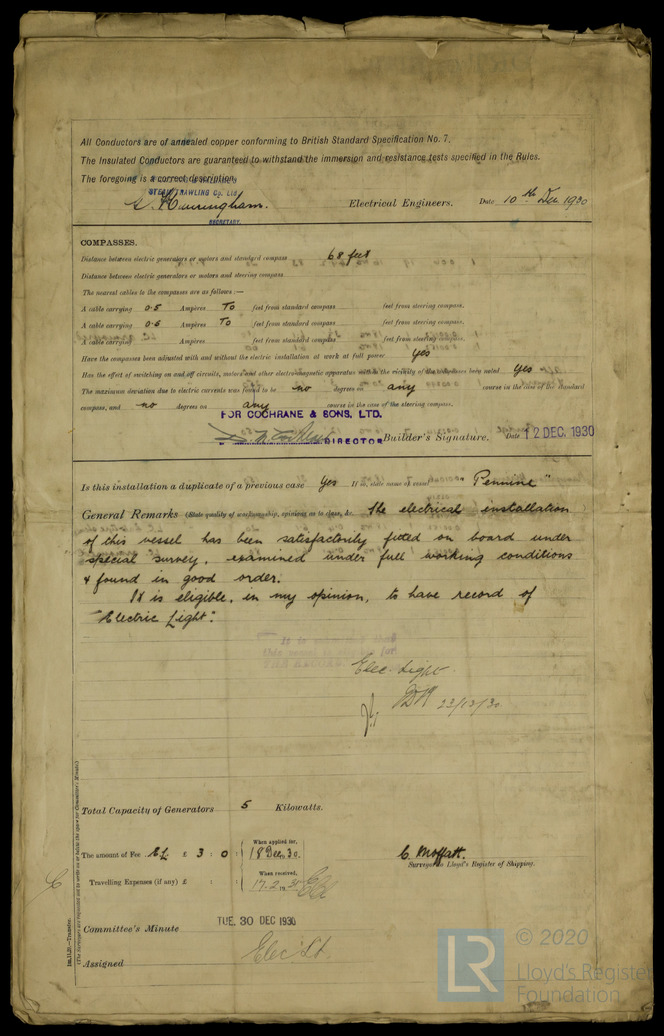 All Conductors are of annealed copper conforming to British Standard Specification No. 7.
The Insulated Conductors are guaranteed to withstand the immersion and resistance tests specified in the Rules.
The foregoing is a correct description,
STEAM TRAWLING Co. Ltd.
Electrical Engineers. Date 10th Dec 1930
SECRETARY.
COMPASSES.
Distance between electric generators or motors and standard compass 68 feet
Distance between electric generators or motors and steering compass
The nearest cables to the compasses are as follows:—
A cable carrying 0.5 Ampères To feet from standard compass feet from steering compass.
A cable carrying 0.5 Ampères To feet from standard compass feet from steering compass.
A cable carrying Ampères feet from standard compass feet from steering compass.
Have the compasses been adjusted with and without the electric installation at work at full power yes
Has the effect of switching on and off circuits, motors and other electro-magnetic apparatus within the vicinity of the compasses been noted yes
The maximum deviation due to electric currents was found to be no degrees on any course in the case of the standard
compass, and no degrees on any course in the case of the steering compass.
FOR COCHRANE & SONS, LTD.
DIRECTOR Builder's Signature. Date 12 DEC. 1930
Is this installation a duplicate of a previous case Yes If so, state name of vessel "Pennine"
General Remarks (State quality of workmanship, opinions as to class, &c. The electrical installation
of this vessel has been satisfactorily fitted on board under
special survey, examined under full working conditions
& found in good order.
It is eligible, in my opinion, to have record of
"Electric Light".
It is
this vessel
THE RECORD
Elec. Light.
23/12/30
Total Capacity of Generators 5 Kilowatts.
The amount of Fee EL £ 3 : 0 : When applied for, 18 Dec. 30.
C. Moffatt.
Surveyor to Lloyd's Register of Shipping.
Travelling Expenses (if any) £ : : When received, 17.2.19 31
Committee's Minute TUE. 30 DEC 1930
Assigned Elec Lt.
(The Surveyors are requested not to write on or below the space for Committee's Minute.)
© 2020
LR Lloyd's Register
Foundation